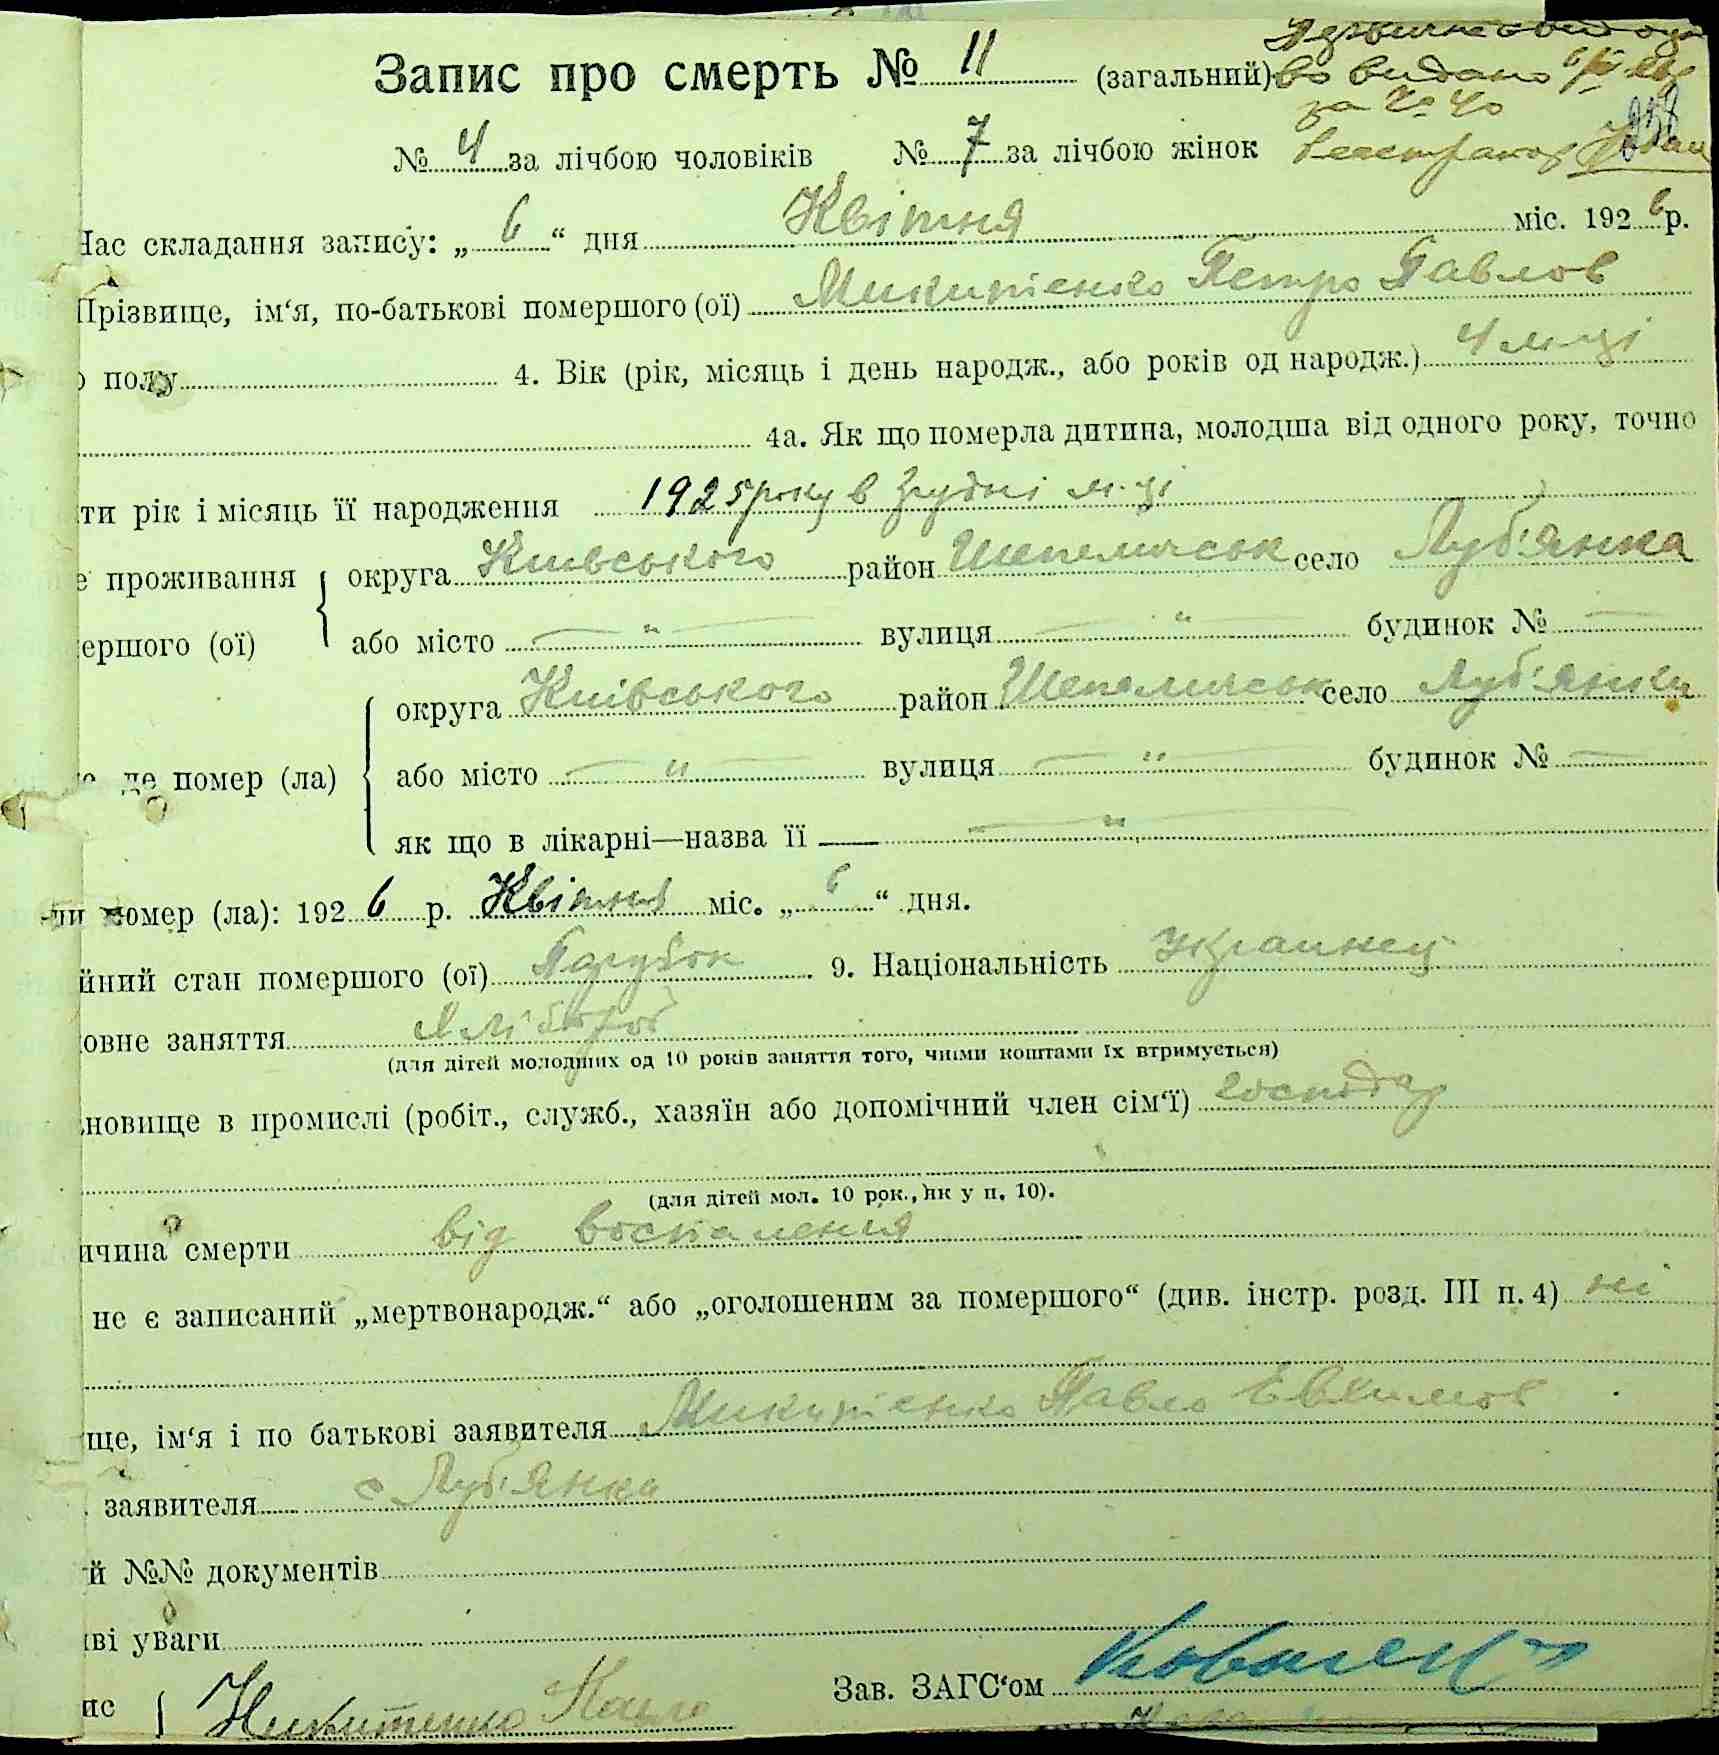 Запис про смерть № 11 (загальний)
во видано 6/IV 26 р
за № 40
№ 4 за лічбою чоловіків № 7 за лічбою жінок
Час складання запису: „ 6 “ дня Квітня міс. 192 6 р.
Прізвище, ім‘я, по-батькові помершого (ої) Микитієнко Петро Павлов
о полу 4. Вік (рік, місяць і день народж., або років од народж.) 4 м-ці
4а. Як що померла дитина, молодша від одного року, точно
ти рік і місяць її народження 1925 року в грудні м-ці
е проживання округа Київського район Шепелицськ село Луб'янка
ершого (ої) або місто — " — вулиця — " будинок № —
округа Київського район Шепелицськ село Луб'янки
де помер (ла) або місто — " — вулиця — " — будинок № —
як що в лікарні—назва її — "
ли помер (ла): 192 6 р. Квітня міс. „ 6 “ дня.
йний стан помершого (ої) Парубок . 9. Національність Украинец
овне заняття Хлібороб
(для дітей молодших од 10 років заняття того, чиїми коштами їх втримується)
новище в промислі (робіт., служб., хазяїн або допомічний член сім‘ї) господар
(для дітей мол. 10 рок., як у п. 10).
ичина смерти від воспаления
не є записаний „мертвонародж.“ або „оголошеним за помершого“ (див. інстр. розд. III п. 4) ні
ще, ім‘я і по батькові заявителя Микитієнко Павло Евхимов
заявителя с Луб'янка
й №№ документів
иві уваги
Зав. ЗАГС‘ом
ис Никитенко Павло